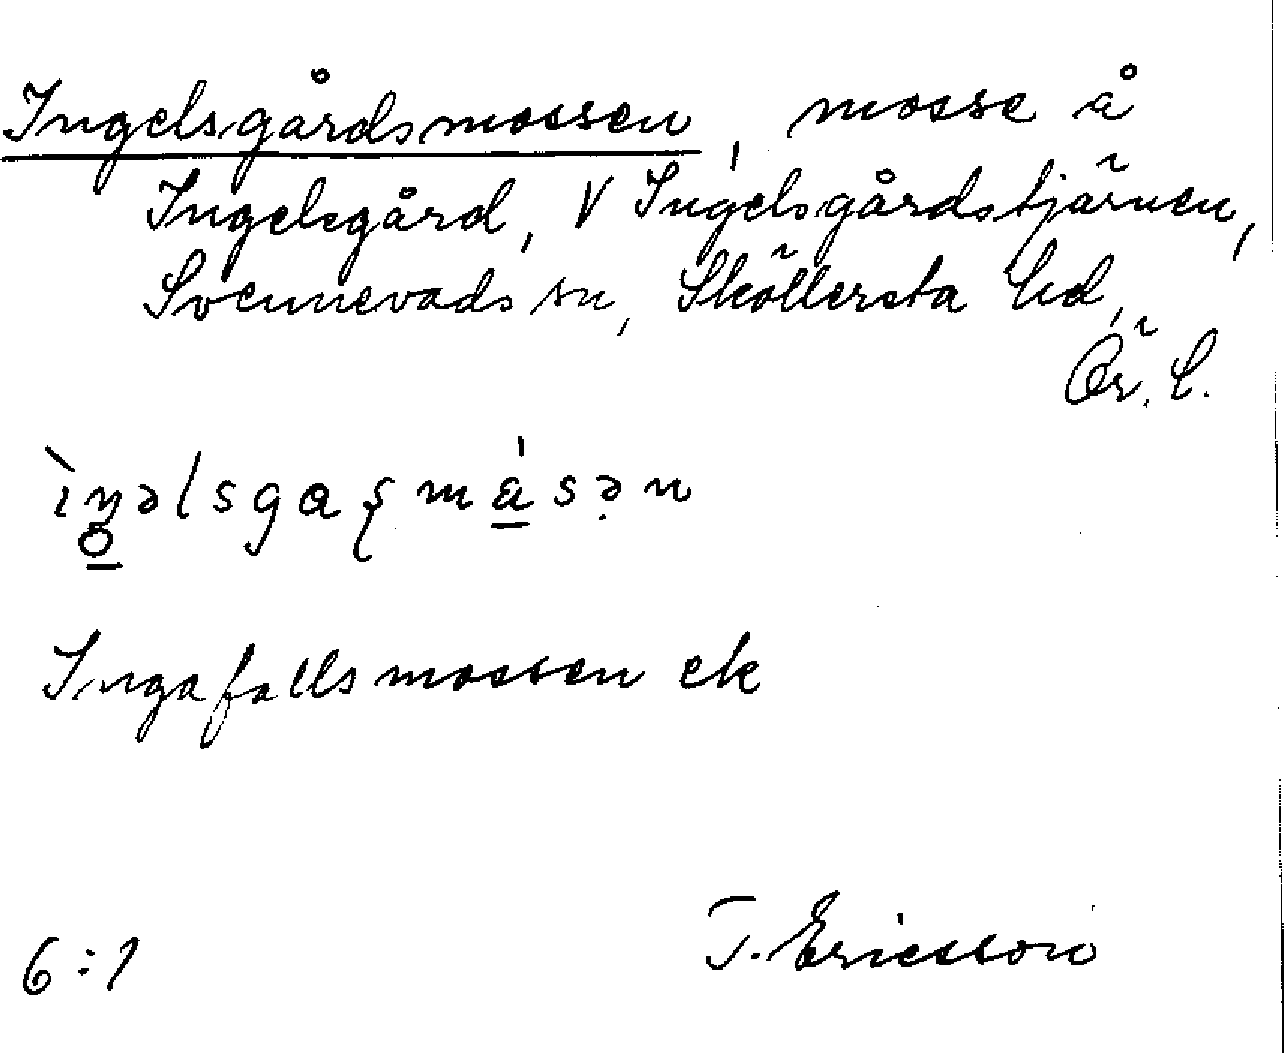 Ingelsgårdsmossen, mosse å
Ingelsgård, V Ingelsgårdstjärnen,
Svennevads sn, Sköllersta hd,
Ör. l.
ìŋəlsgaʂmásən
Ingafallsmossen ek
6:1 T. Ericsson